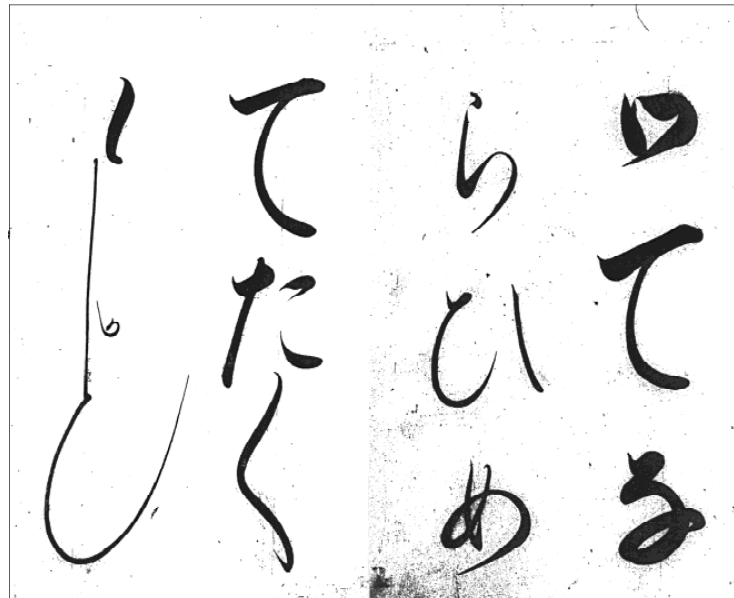 口てな
らひめ
てたく